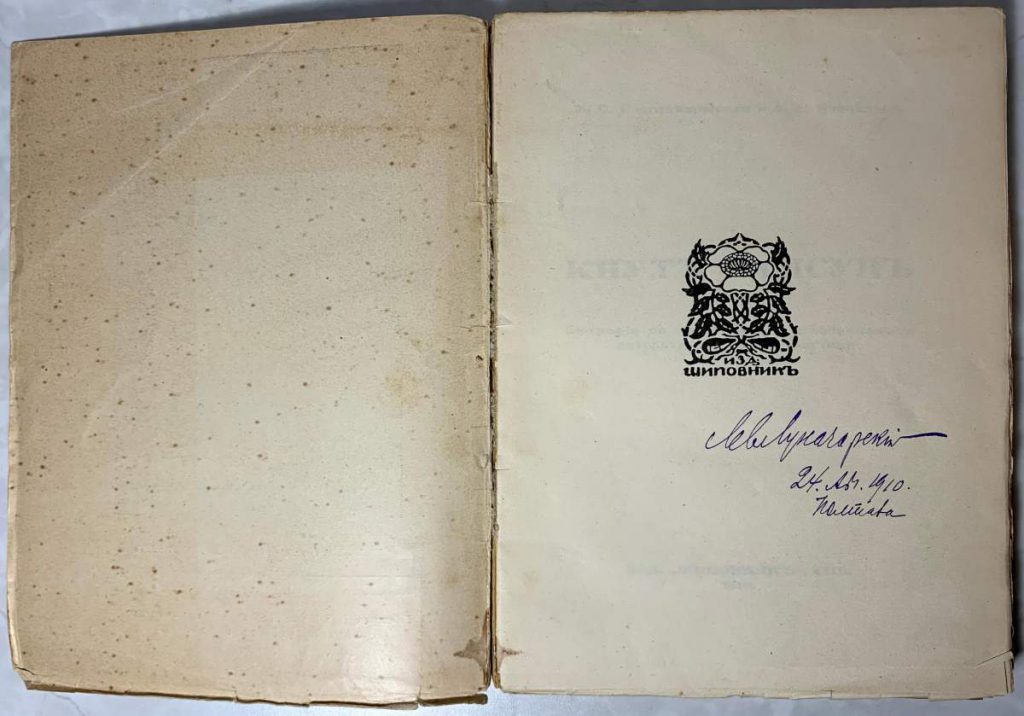 ИЗД.
ШИПОВНИКЪ
Лев Луначарскій
24. Авг. 1910.
Полтава